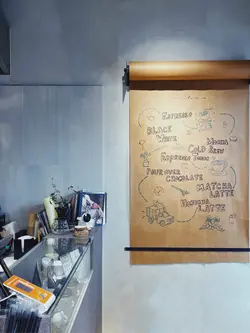 ESPRESSO
BLACK
WHITE
MOCHA
COLD BREW
POUR OVER
CHOCOLATE
MATCHA
LATTE
LATTE